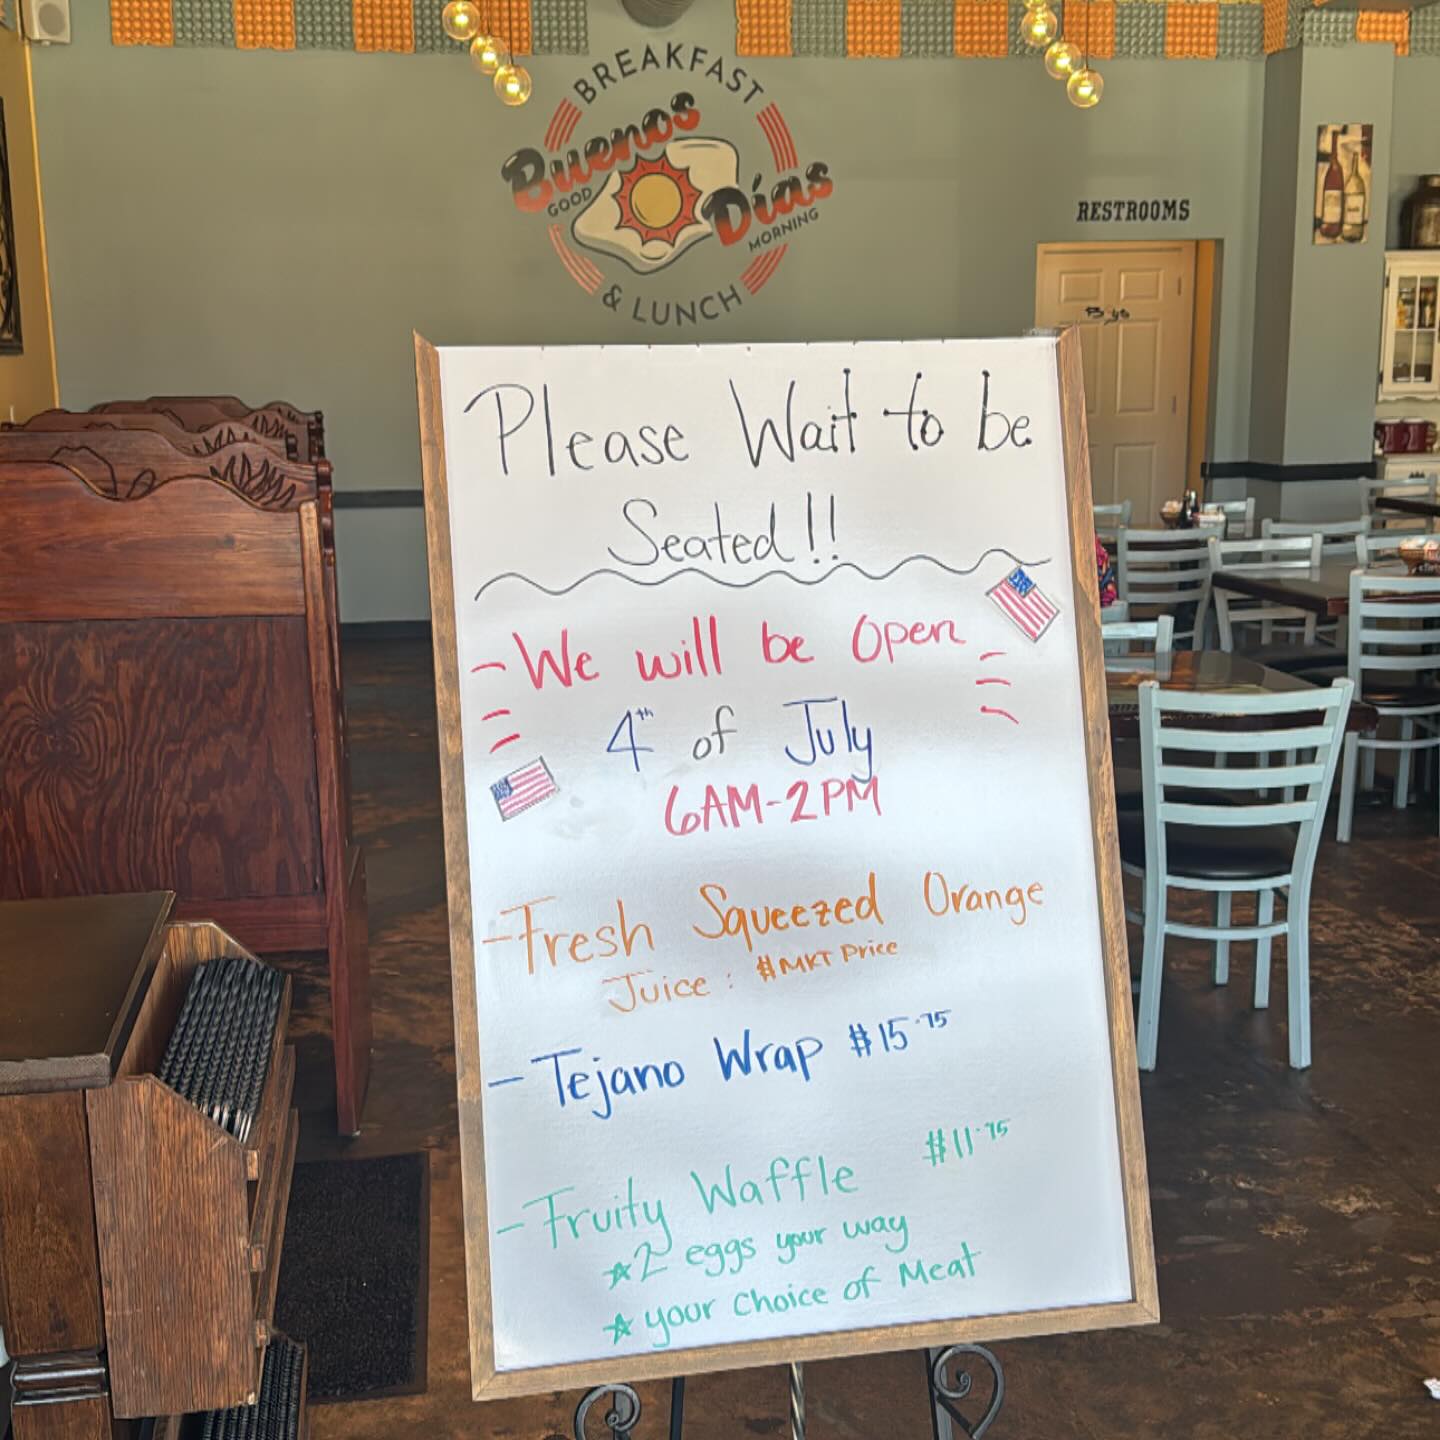 BREAKFAST
Buenos
GOOD
Días
MORNING
& LUNCH
RESTROOMS
Please Wait to be
Seated!!
- We will be Open
4th of July
6AM-2PM
- Fresh Squeezed Orange
Juice: $MKT Price
- Tejano Wrap $15.75
- Fruity Waffle $11.75
☆ 2 eggs your way
☆ your choice of Meat